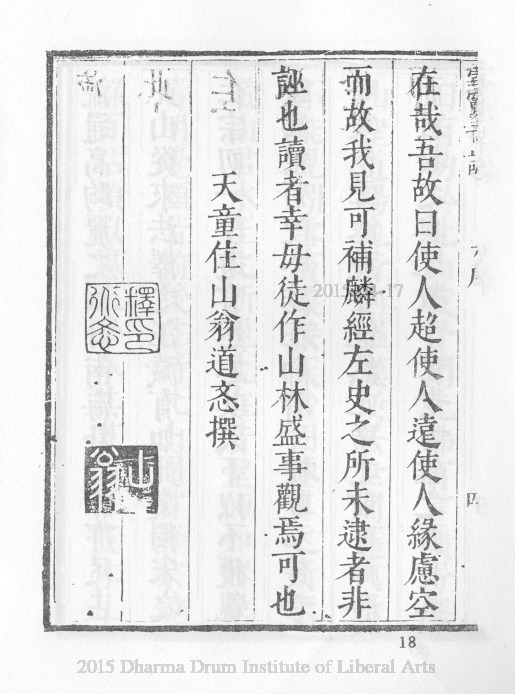 在哉吾故曰使人超使人遠使人緣慮空
而故我見可補麟經左史之所未逮者非
誣也讀者幸毋徒作山林盛事觀焉可也
天童住山翁道忞撰
山翁
18
2015 Dharma Drum Institute of Liberal Arts